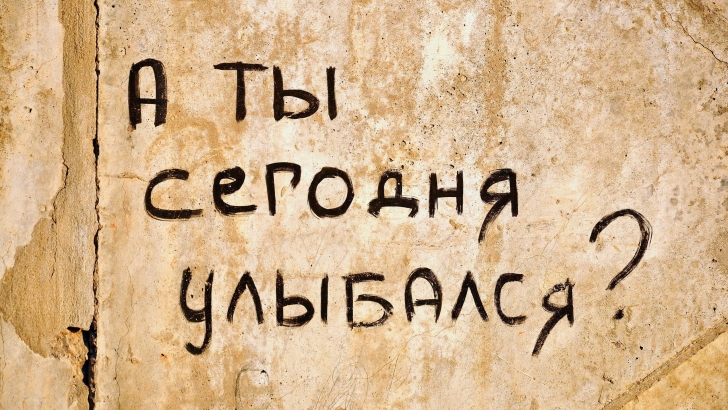 А ТЫ
сегодня
улыБАЛся?